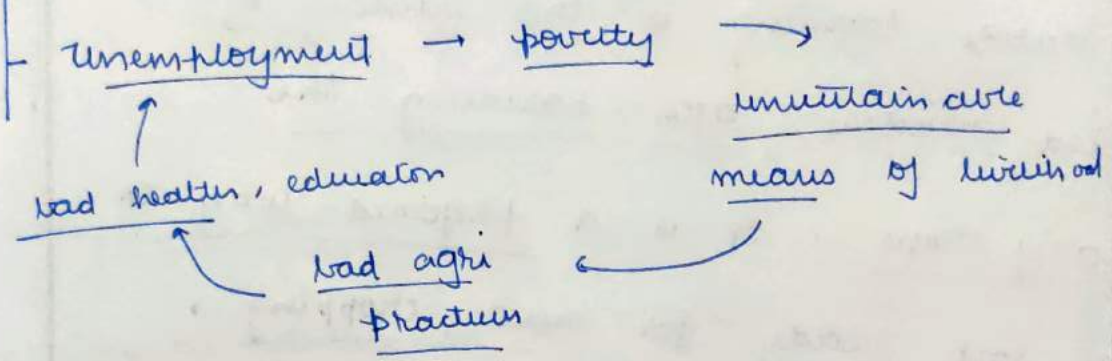 unemployment → poverty →
unsustainable
means of livelihood
bad health, education
bad agri
practices